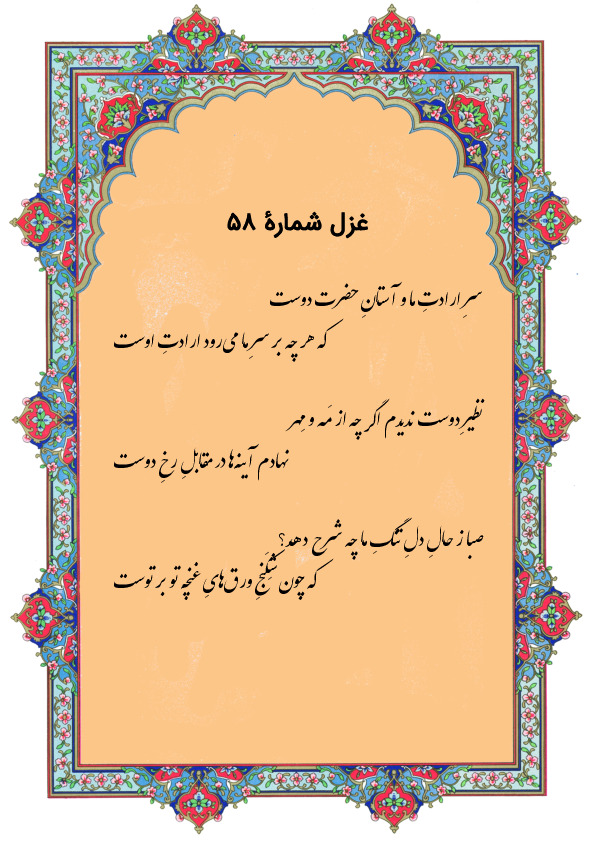 غزل شمارهٔ ۵۸
سرِ ارادتِ ما و آستانِ حضرت دوست
که هر چه بر سرِ ما می‌رود ارادتِ اوست
نظیرِ دوست ندیدم اگر چه از مَه و مِهر
نهادم آینه‌ها در مقابلِ رخِ دوست
صبا ز حالِ دلِ تنگِ ما چه شرح دهد؟
که چون شِکَنجِ ورق‌هایِ غنچه تو بر توست